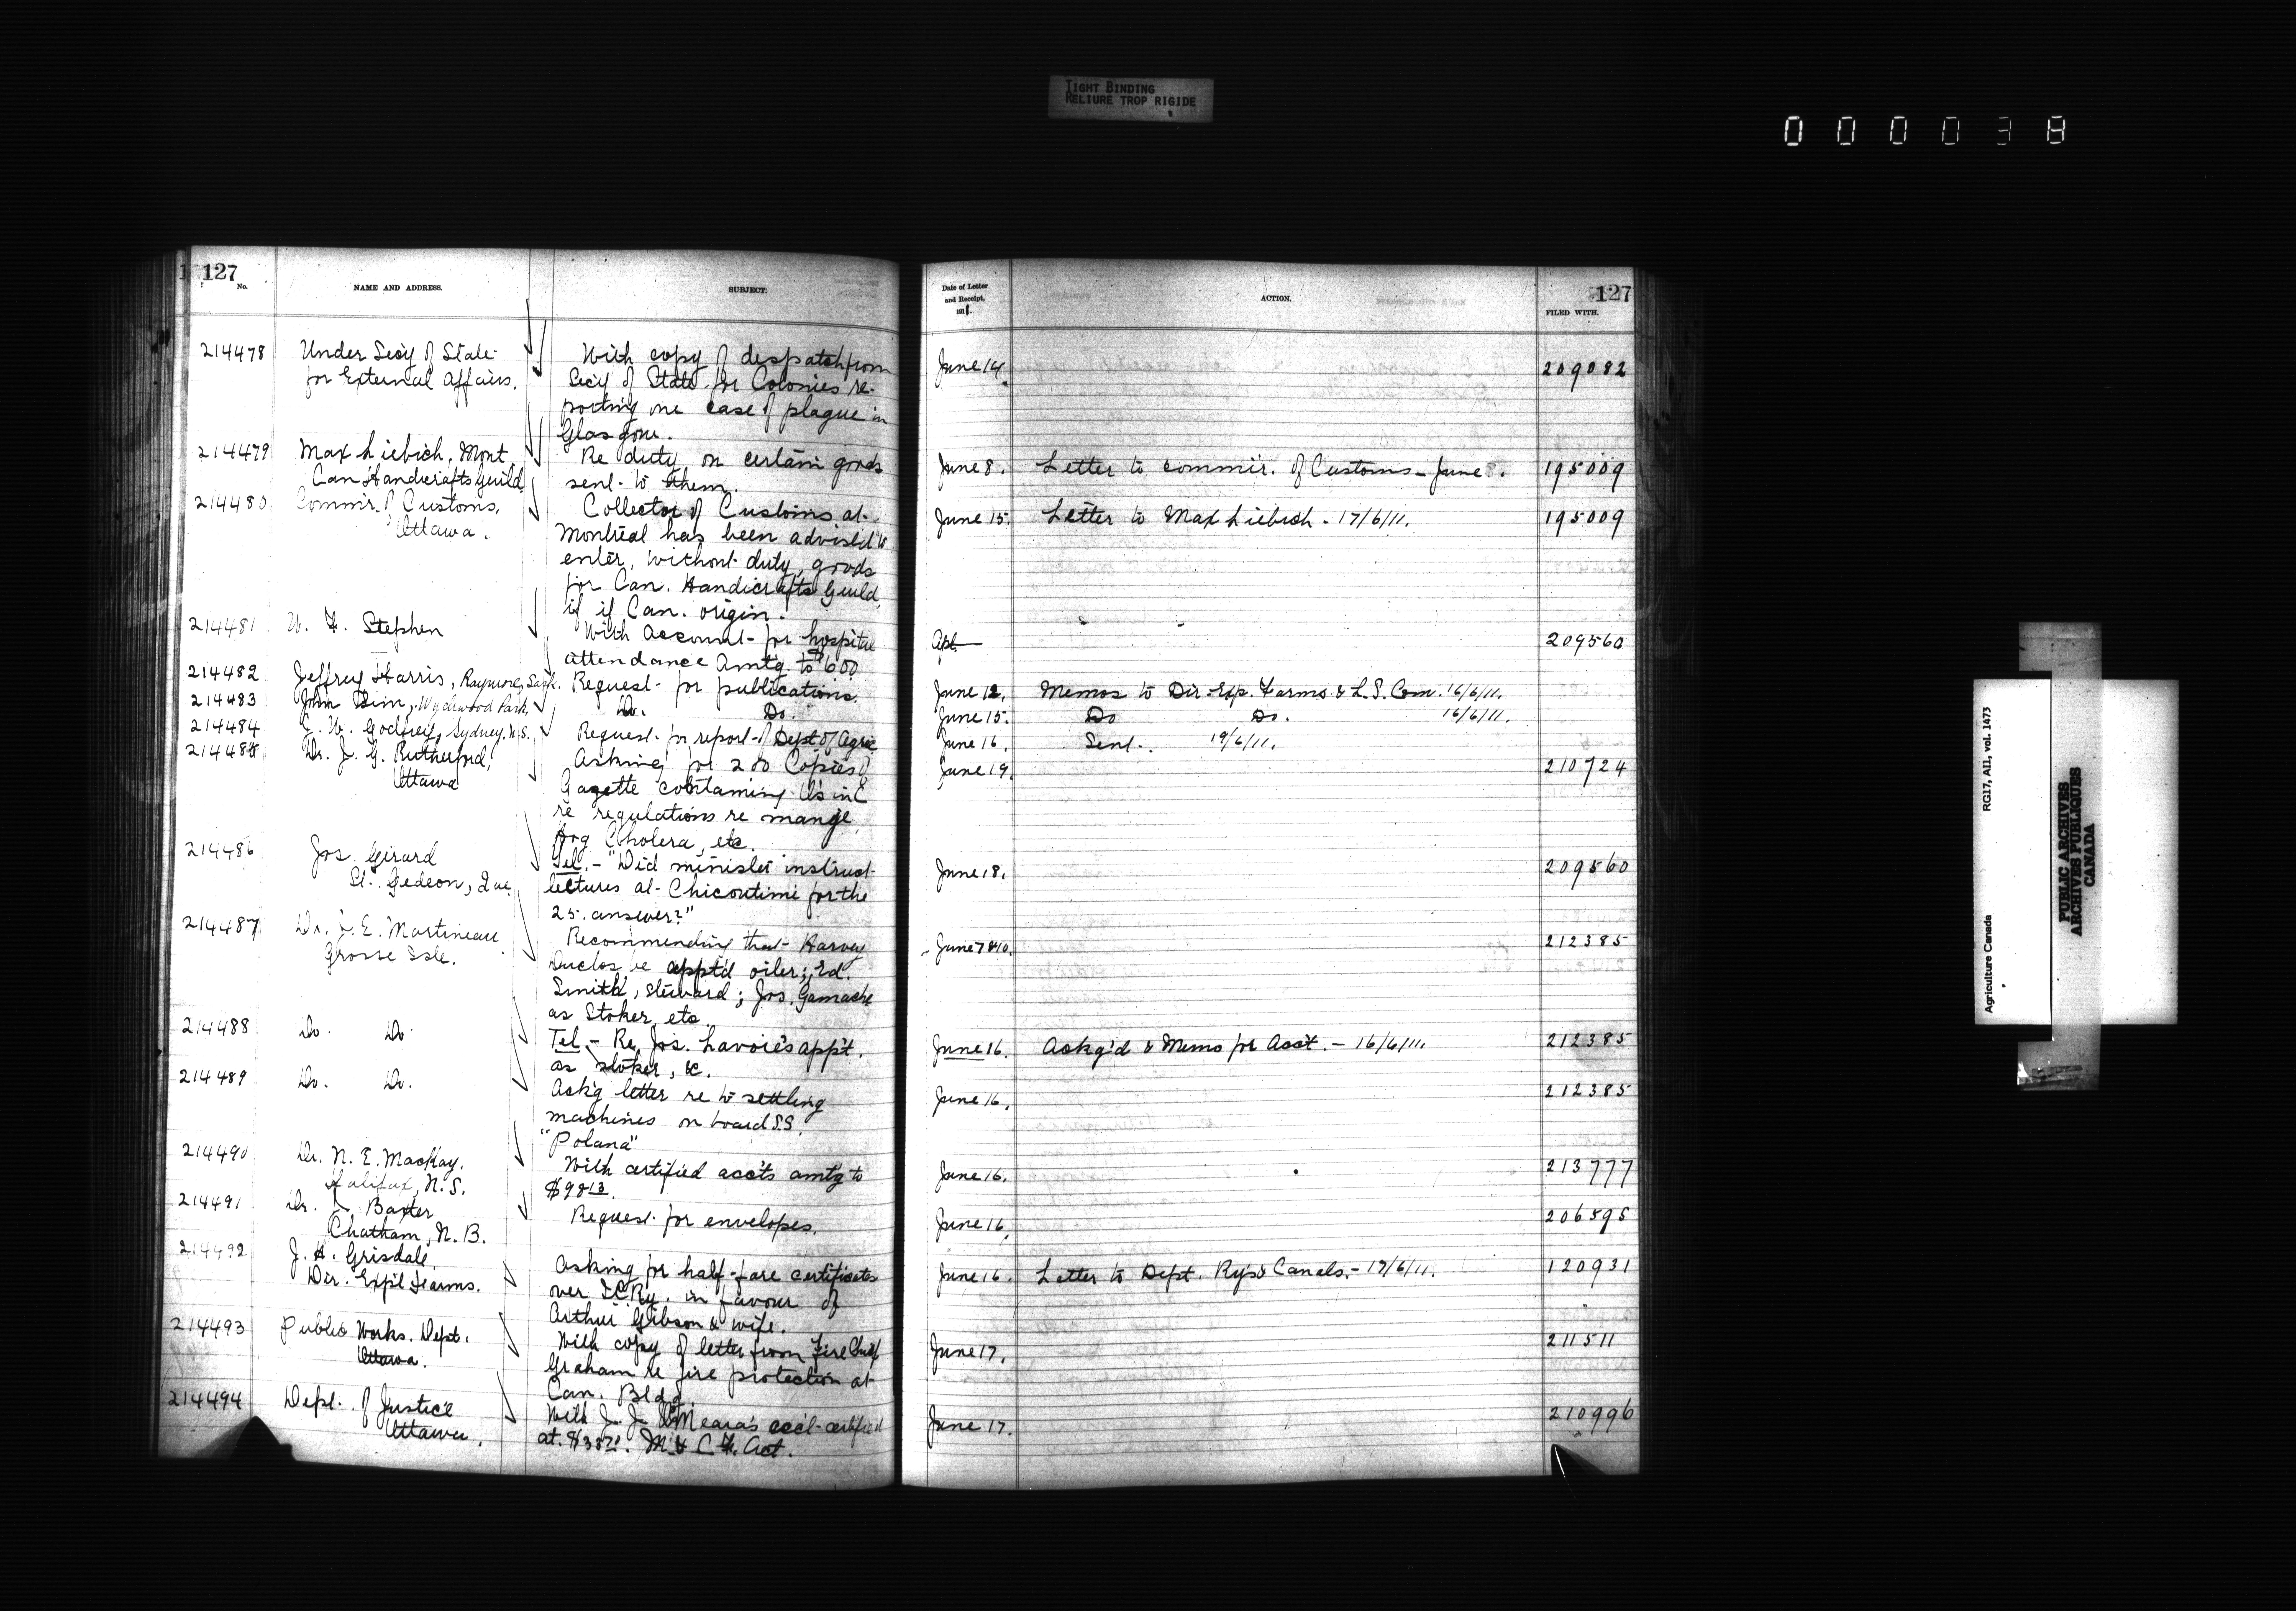 TIGHT BINDING
RELIURE TROP RIGIDE
000038
127
No.
NAME AND ADDRESS.
SUBJECT.
214478
Under Sec'y of State
for External Affairs.
With copy of despatch from
Sec'y of State for Colonies re-
porting one case of plague in
Glasgow.
214479
Max Liebich, Mont
Can Handicrafts Guild
Re duty on certain goods
sent to them.
214480
Commr. of Customs,
Ottawa.
Collector of Customs at
Montreal has been advised to
enter, without duty, goods
for Can. Handicrafts Guild,
if if Can. origin.
214481
W. F. Stephen
With account for hospital
attendance amt'g. to $600
214482
Jeffrey Harris, Raymore, Sask.
Request for publications.
214483
John Sim, Wychwood Park.
Do. Do.
214484
C. W. Godfrey, Sydney, N.S.
Request for report of Dept of Agric
214485
Dr. J. G. Rutherford,
Ottawa
Asking for 200 Copies of
Gazette containing Os in C
re regulations re mange,
Hog Cholera, etc.
214486
Jos. Girard
St. Gedeon, Que.
Tel. - "Did minister instruct
lectures at Chicoutimi for the
25. answer?"
214487
Dr. G. E. Martineau
Grosse Isle.
Recommending that Harvey
Duclos be appt'd oiler; Ed.
Smith, steward; Jos. Gamache
as Stoker, etc
214488
Do. Do.
Tel - Re Jos. Lavoie's app't.
as stoker, &c.
214489
Do. Do.
Ack'g letter re to settling
machines on board S.S.
"Polana"
214490
Dr. N. E. MacKay.
Halifax, N.S.
With certified acc'ts amt'g to
$98 13.
214491
Dr. Baxter
Chatham, N.B.
Request for envelopes.
214492
J. H. Grisdale,
Dir. Exp'l Farms.
Asking for half-fare certificates
over ICRy. in favour of
Arthur Gibson & wife.
214493
Public Works. Dept.
Ottawa.
With copy of letter from Fire Chief
Graham re fire protection at
Can. Bldg.
214494
Dept. of Justice
Ottawa.
With J. J. O'Meara's acct certified
at. M & L F. Act.
Date of Letter
and Receipt,
1911.
ACTION.
127
FILED WITH.
June 14.
209082
June 8. Letter to commir. of Customs - June 8. 195009
June 15. Letter to Max Liebich - 17/6/11. 195009
Apl.
209560
June 12. Memos to Dir. Exp. Farms & L.S. Com. 16/6/11.
June 15. Do Do. 16/6/11.
June 16. Sent. 19/6/11.
June 19.
210724
June 18.
209560
June 7 & 10.
212385
June 16. Ackg'd & Memo for Acc't. - 16/6/11.
212385
June 16.
212385
June 16.
213777
June 16.
206595
June 16. Letter to Dept. Rys & Canals. - 17/6/11.
120931
June 17.
211511
June 17.
210996
Agriculture Canada
RG17, AII, vol. 1473
PUBLIC ARCHIVES
ARCHIVES PUBLIQUES
CANADA